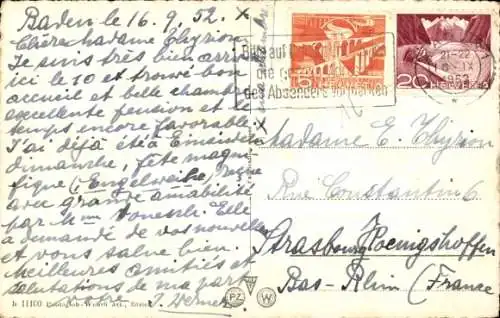 Baden le 16. 9. 52.
Chère Madame Thyrion
Je suis très bien arrivé
ici le 10 et trouvé bon
accueil et belle chambre
excellente pension et le
temps encore favorable.
J'ai déjà été à
dimanche, fête magni-
fique (Engelweihe) reçue
avec grande amabilité
par Mme Elle
a demandé de vos nouvelles
et vous salue bien.
Meilleures amitiés et
salutations de ma part
votre J.
15
HELVETIA
20
HELVETIA
21-22
IX
1952
Bitte auf
die
des Absenders vermerken
Madame E. Thyrion
Rue Constantin 6
Strasbourg Koenigshoffen
Bas-Rhin (France
Jc 11100 Photoglob-Wehrli A.G., Zürich
PZ
W